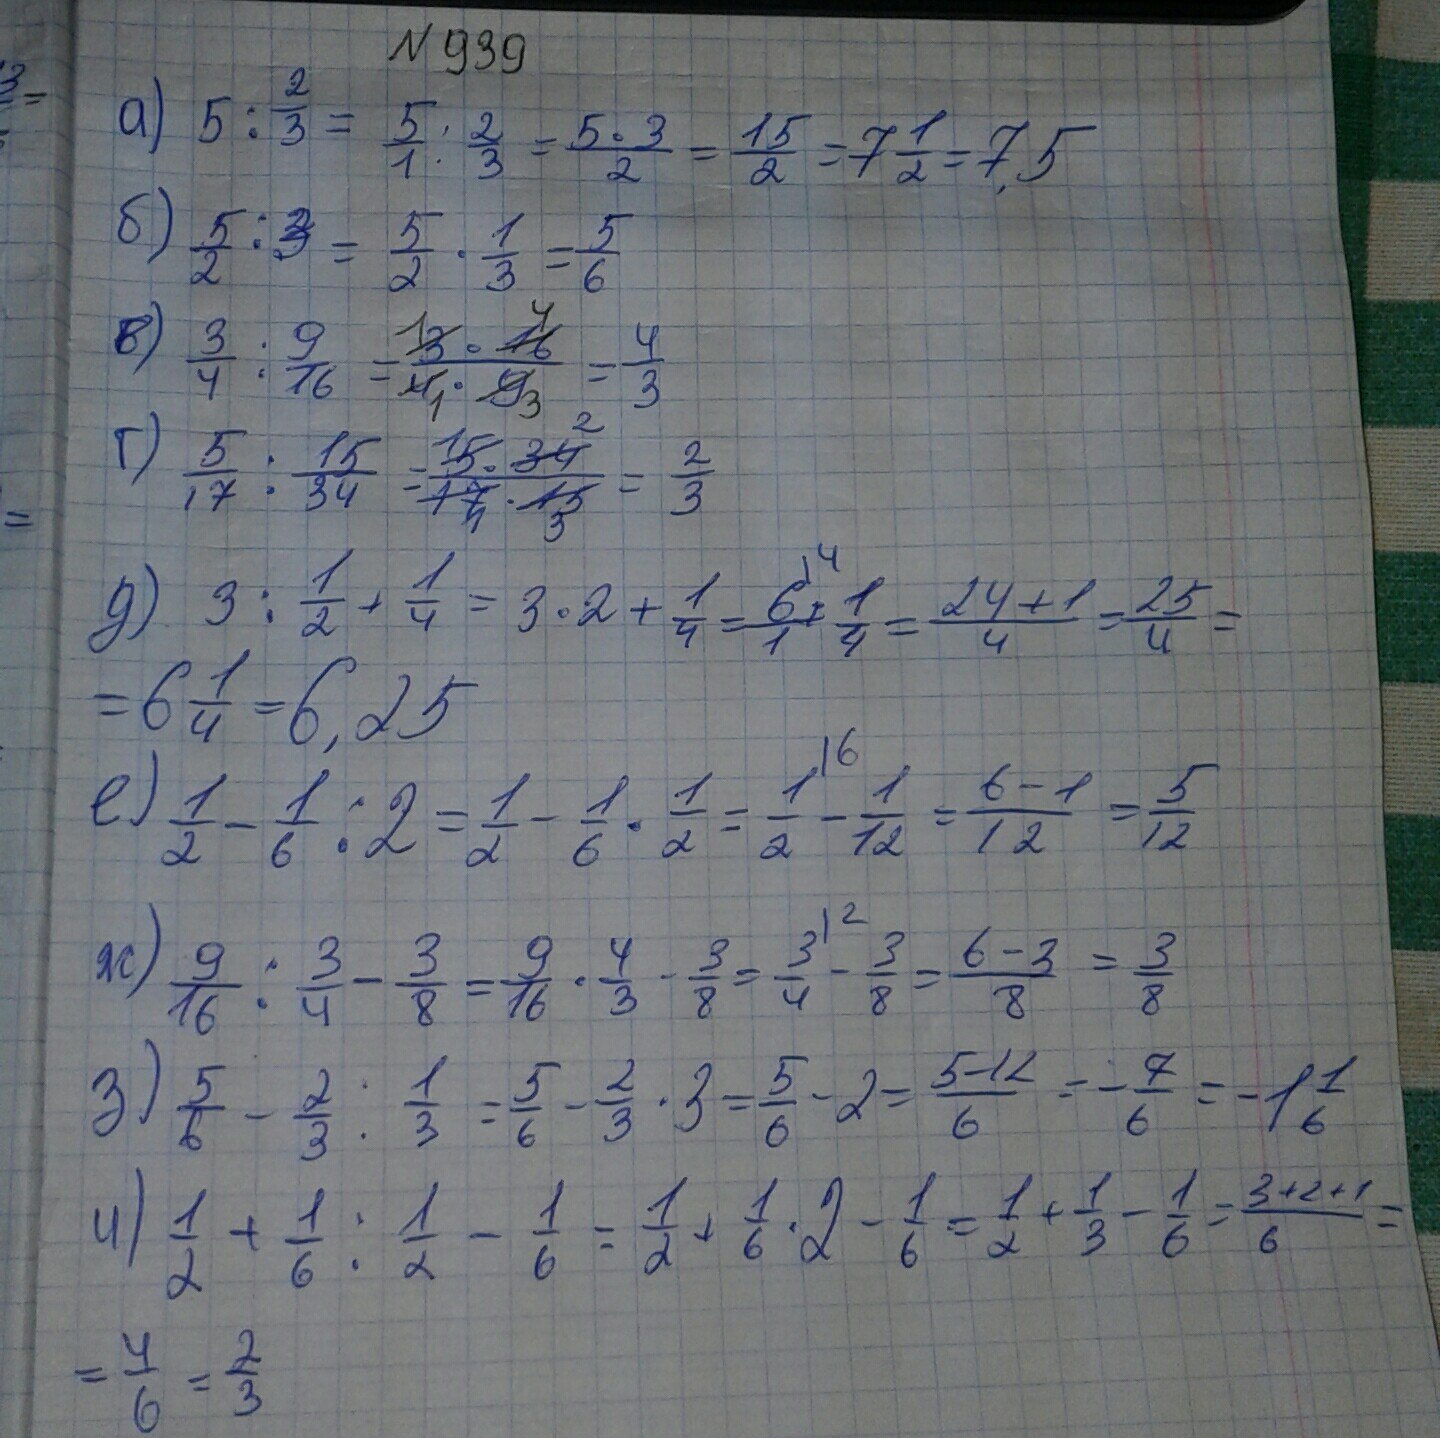 N 939
а) 5 : 2/3 = 5/1 : 2/3 = 5·3/2 = 15/2 = 7 1/2 = 7,5
б) 5/2 : 3 = 5/2 · 1/3 = 5/6
в) 3/4 : 9/16 = 3·16/4·9 = 4/3
г) 5/17 : 15/34 = 5·34/17·15 = 2/3
д) 3 : 1/2 + 1/4 = 3·2 + 1/4 = 6/1 + 1/4 = 24+1/4 = 25/4 =
= 6 1/4 = 6,25
е) 1/2 - 1/6 : 2 = 1/2 - 1/6 · 1/2 = 1/2 - 1/12 = 6-1/12 = 5/12
ж) 9/16 : 3/4 - 3/8 = 9/16 · 4/3 - 3/8 = 3/4 - 3/8 = 6-3/8 = 3/8
з) 5/6 - 2/3 : 1/3 = 5/6 - 2/3 · 3 = 5/6 - 2 = 5-12/6 = - 7/6 = -1 1/6
и) 1/2 + 1/6 : 1/2 - 1/6 = 1/2 + 1/6 · 2 - 1/6 = 1/2 + 1/3 - 1/6 = 3+2+1/6 =
= 4/6 = 2/3